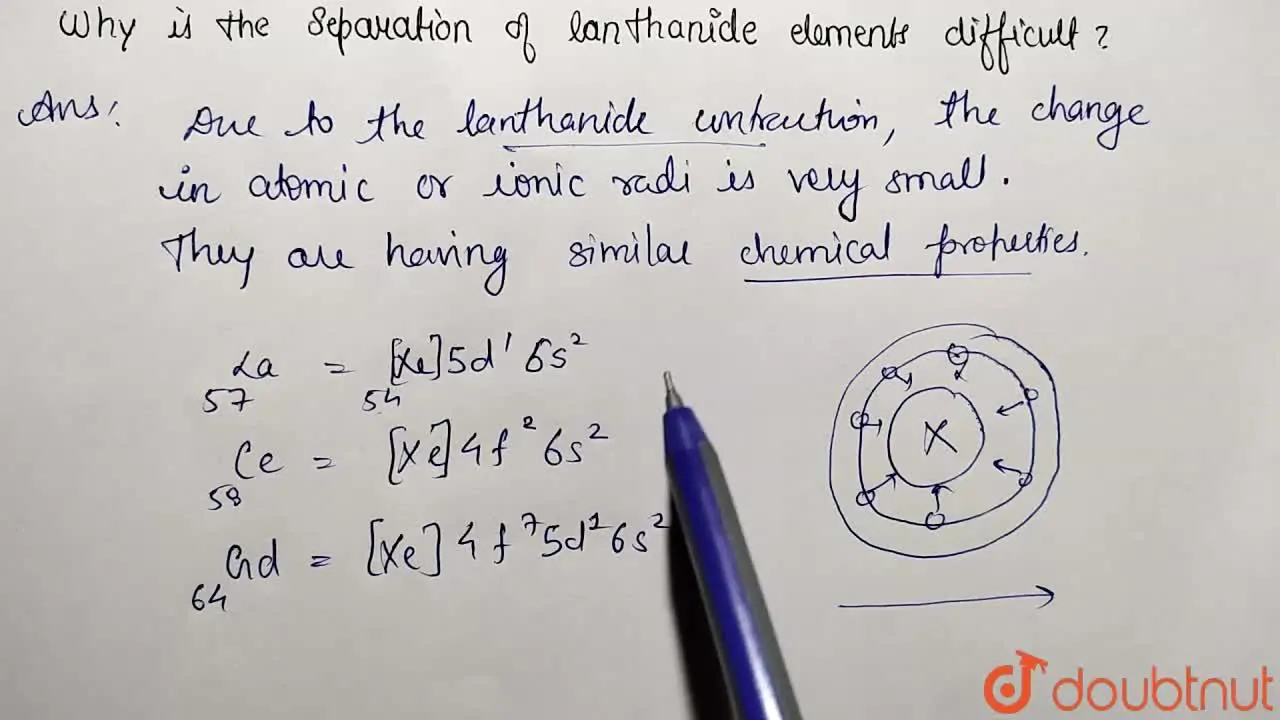 Why is the separation of lanthanide elements difficult?
Ans: Due to the lanthanide contraction, the change
in atomic or ionic radi is very small.
They are having similar chemical properties.
57La = 54[Xe] 5d¹ 6s²
58Ce = [Xe] 4f² 6s²
64Gd = [Xe] 4f⁷ 5d¹ 6s²
X
doubtnut